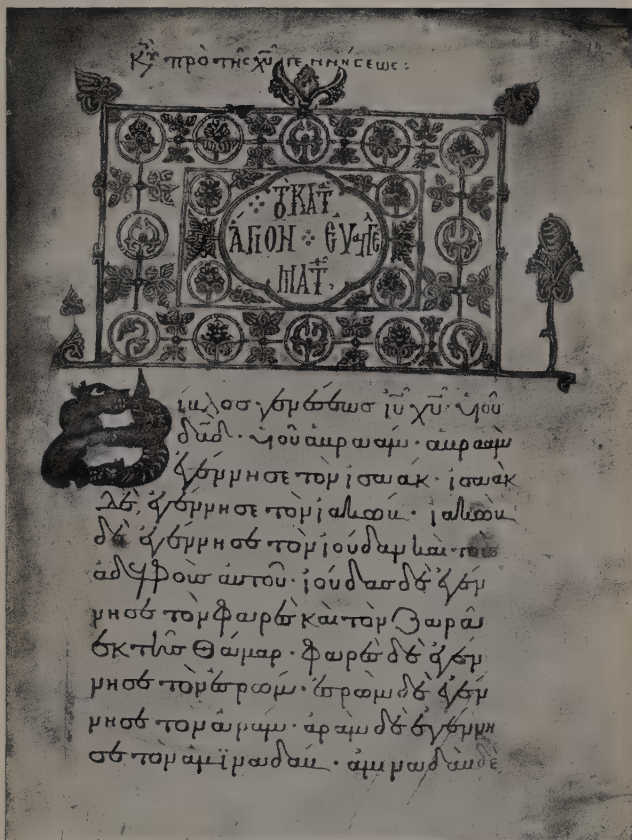 Κυ πρὸ τῆς χῦ γεννήσεως:
ΚΑΤ
ἍΓΙΟΝ ⁘ ΕΥΑΓΓΕ
ΜΑΤ
Βίβλος γενέσεως ἰῦ χῦ· υἱοῦ
δᾱδ· υἱοῦ ἀβρααμ· ἀβρααμ
ἐγέννησε τὸν ἰσαακ· ἰσαὰκ
δὲ ἐγέννησε τὸν ἰακώβ· ἰακὼβ
δὲ ἐγέννησε τὸν ἰούδαν καὶ τοὺς
ἀδελφοὺς αὐτοῦ· ἰούδας δὲ ἐγέν
νησε τὸν φαρὲς καὶ τὸν ζαρὰ
ἐκ τῆς Θάμαρ· φαρὲς δὲ ἐγέν
νησε τὸν ἐσρώμ· ἐσρὼμ δὲ ἐγέν
νησε τὸν ἀράμ· ἀρὰμ δὲ ἐγέννη
σε τὸν ἀμϊναδάβ· ἀμιναδὰβ δὲ